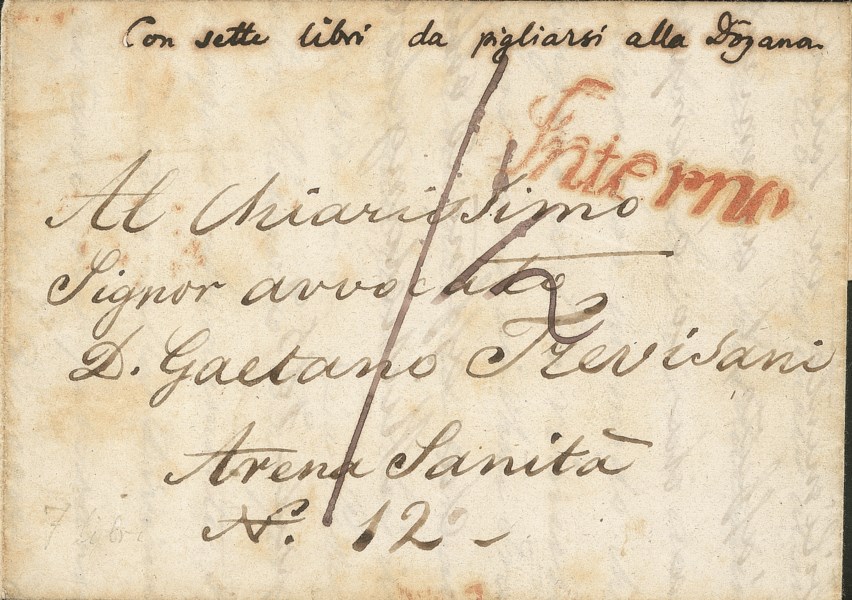 Con sette libri da pigliarsi alla Dogana.
Interno
Al Chiarissimo
Signor avvocato
D. Gaetano Trevisani
Arena Sanità
N. 12 -
7 libri